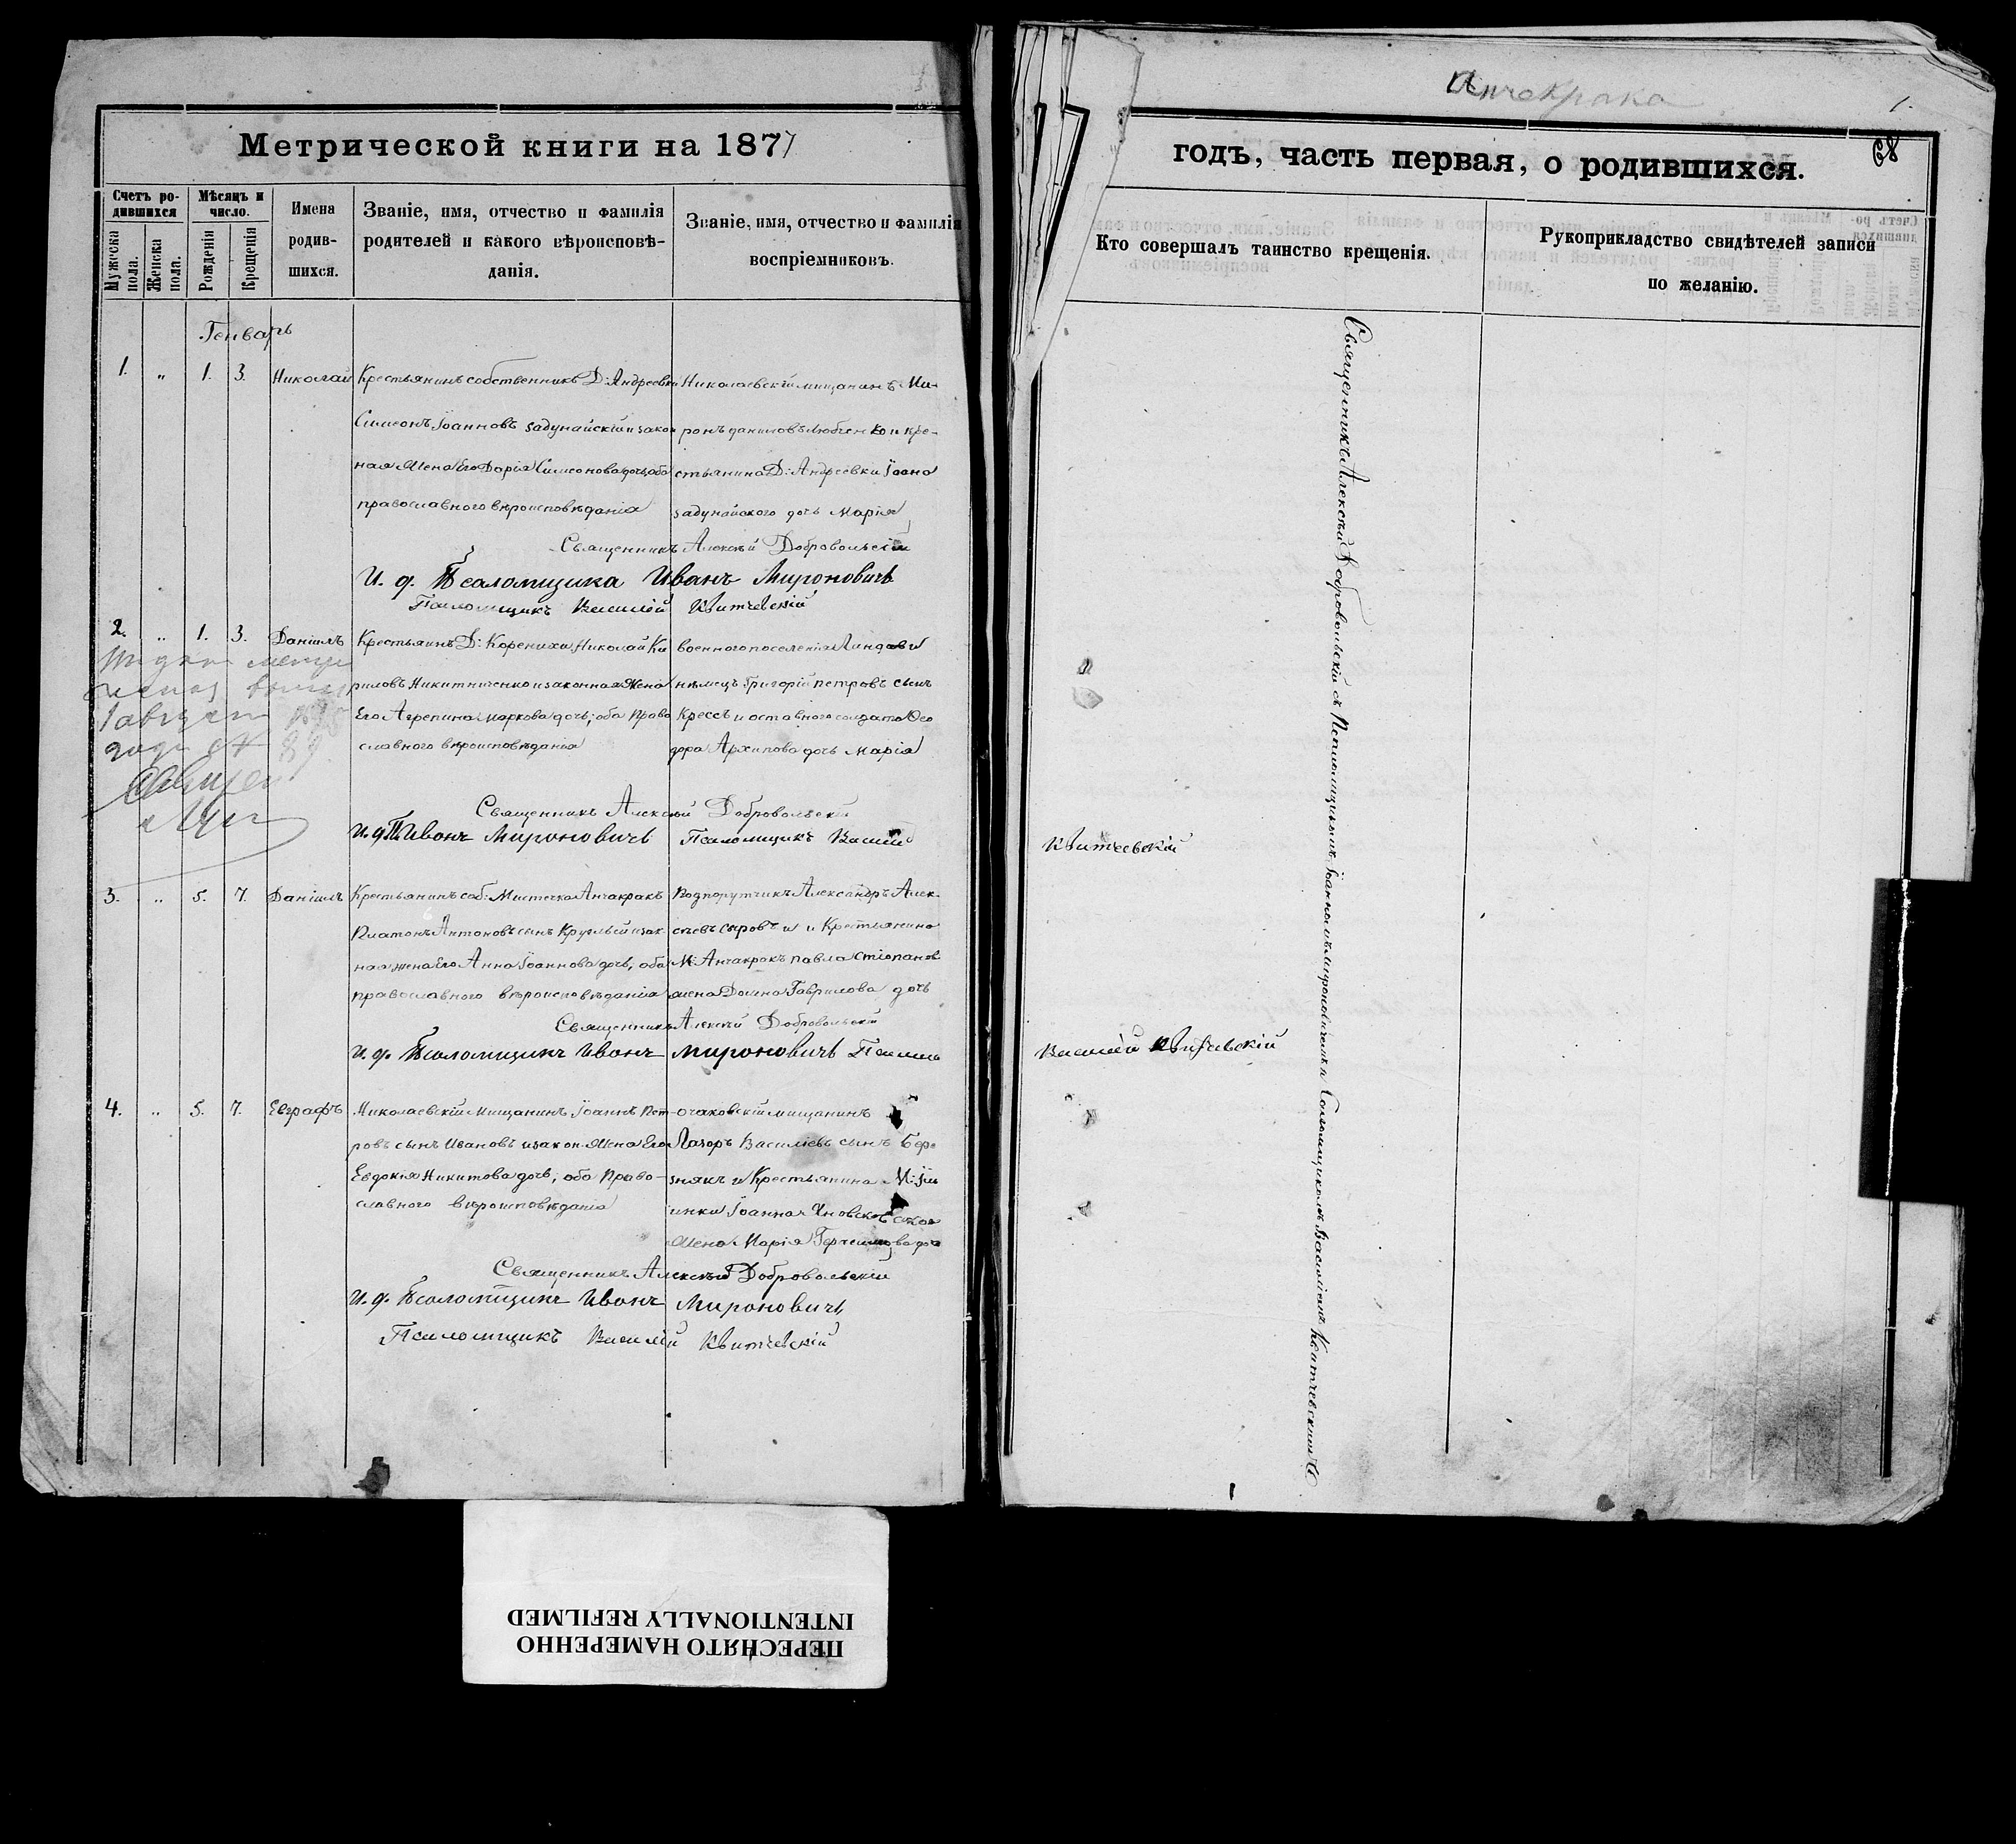 Метрической книги на 1877
Счетъ родившихся
Мѣсяцъ и число.
Имена родившихся.
Званіе, имя, отчество и фамилія родителей и какого вѣроисповѣданія.
Званіе, имя, отчество и фамилія воспріемниковъ.
Мужеска пола.
Женска пола.
Рожденія
Крещенія
Генварь
1. „ 1. 3. Николай
Крестьянинъ собственникъ Д: Андреевки
Симеонъ Іоанновъ Задунайскій и закон
ная Жена Его Дарія Симеонова дочь, оба
православнаго вѣроисповѣданія
Николаевскій мищанинъ Ми-
ронъ даниловъ Любченко и кре-
стьянина Д: Андреевки Іоана
Задунайского дочь Марія
Священникъ Алексѣй Добровольскій
И. д. Псаломщика Иванъ Мироновичъ
Псаломщикъ Василій Квитчевскій
2. „ 1. 3. Даніилъ
Крестьянинъ Д: Коренихи Николай Ки
риловъ Никитниченко и законная Жена
Его Агрепина маркова дочь; оба Право
славного вѣроисповѣданія
военного поселенія Ландови
нѣмецъ Григорій петровъ сынъ
Кресъ и оставного солдата Фео
дора Архипова дочь Марія
Священникъ Алексѣй Добровольскій
И. д. П. Иванъ Мироновичъ Псаломщикъ Василій
Квитчевскій
3. „ 5. 7. Даніилъ
Крестьянинъ соб: Мистечка Анчакракъ
Платонъ Антоновъ сынъ Круглый и зак
ная жена Его Анна Іоаннова дочь, оба
православного вѣроисповѣданія
Подпорутчикъ Александръ Алек-
сѣевъ сыровъ и Крестьянина
М: Анчакракъ павла Стіопанов
жена Домна Гаврилова дочь
Священникъ Алексѣй Добровольскій
И. д. Псаломщика Иванъ Мироновичъ
Василій Квитчевскій
4. „ 5. 7. Евграфъ
Николаевскій Мищанинъ Іоаннъ Пет-
ровъ сынъ Ивановъ и закон. Жена Его
Евдокія Никитова дочь; оба Право-
славного вѣроисповѣданія
Очаковскій мищанинъ
Лазоръ Василіевъ сынъ Бере
знякъ и Крестьянина
Жена Марія
Священникъ Алексѣй Добровольскій
И. д. Псаломщика Иванъ Мироновичъ
Псаломщикъ Василій Квитчевскій
Анчекрака
1.
68
годъ, часть первая, о родившихся.
Кто совершалъ таинство крещенія.
Рукоприкладство свидѣтелей записи по желанію.
Священникъ Алексѣй Добровольскій съ Псаломщикомъ Іоанномъ Мироновичемъ и Псаломщикомъ Василіемъ Квитчевскимъ
ПЕРЕСНЯТО НАМЕРЕННО
INTENTIONALLY REFILMED